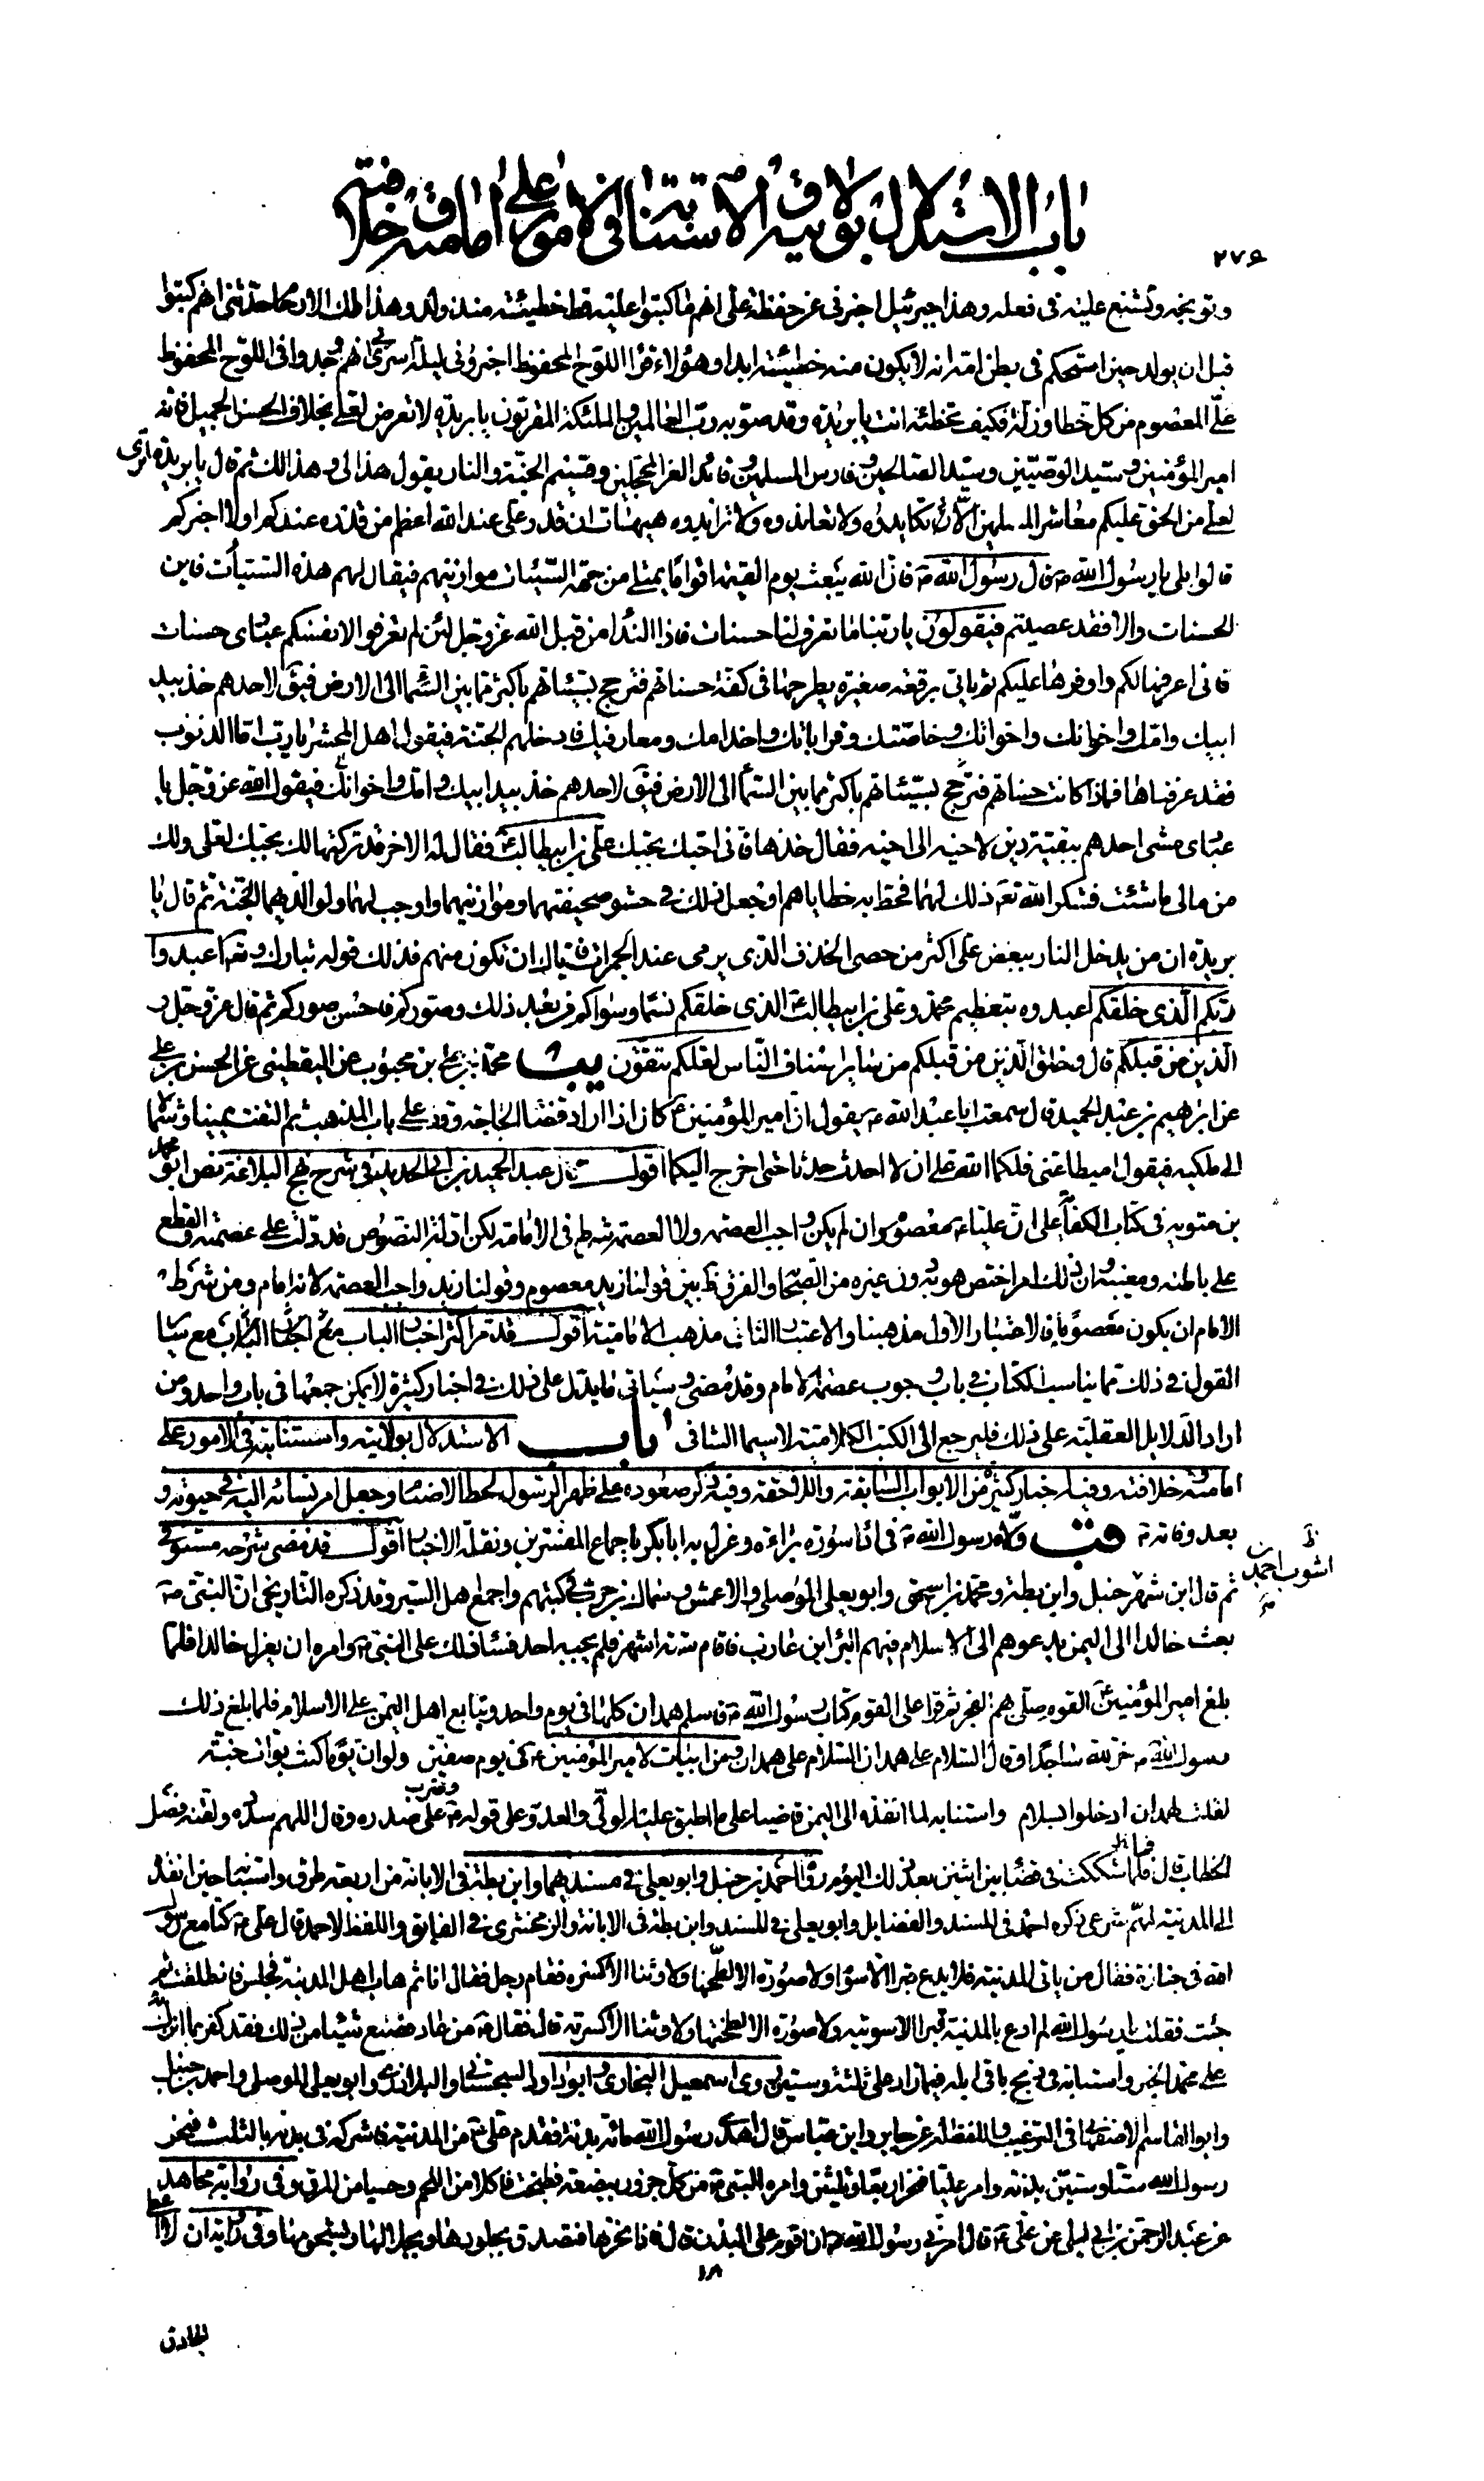 باب الاستدلال بولايته واستنابته في الامور على امامته وخلافته
٢٧٦
وتوبخه وتشنع عليه في فعله وهذا جبرئيل اخبرني عن حفظة على انهم ما كتبوا عليه قط خطيئة منذ ولد وهذا ملك الارحام حدثني انهم كتبوا
قبل ان يولد حين استحكم في بطن امه انه لا يكون منه خطيئة ابدا وهؤلاء قراء اللوح المحفوظ اخبروني ليلة اسري بي انهم وجدوا في اللوح المحفوظ
علي المعصوم من كل خطا وزلة فكيف تخطئه انت يا بريدة وقد صوبه رب العالمين والملئكة المقربون يا بريدة لا تعرض لعلي بخلاف الحسن الجميل فانه
امير المؤمنين وسيد الوصيين وسيد الصالحين وفارس المسلمين وقائد الغر المحجلين وقسيم الجنة والنار يقول هذا لي وهذا لك ثم قال يا بريدة اترى
لعلي من الحق عليكم معاشر المسلمين الا تكايدوه ولا تعاندوه ولا تزايدوه هيهات ان قدر علي عند الله اعظم من قدره عندكم اولا اخبركم
قالوا بلى يا رسول الله ص قال رسول الله ص فان الله يبعث يوم القيمة اقواما يمتلي من جهة السيئات موازينهم فيقال لهم هذه السيئات فاين
الحسنات والا فقد عصيتم فيقولون يا ربنا ما نعرف لنا حسنات فاذا النداء من قبل الله عز وجل لئن لم تعرفوا لانفسكم عبادي حسنات
فاني اعرفها لكم واوفرها عليكم ثم ياتي برقعة صغيرة يطرحها في كفة حسناتهم فترجح بسيئاتهم باكثر مما بين السماء الى الارض فيق لاحدهم خذ بيد
ابيك وامك واخوانك واخواتك وخاصتك وقراباتك واخدامك ومعارفيك فادخلهم الجنة فيقول اهل المحشر يا رب اما الذنوب
فقد عرفناها فماذا كانت حسناتهم فترجح بسيئاتهم باكثر مما بين السماء الى الارض فيق لاحدهم خذ بيد ابيك وامك واخوانك فيقول الله عز وجل يا
عبادي مشى احدهم ببقية دين لاخيه الى اخيه فقال خذها فاني احبك بحبك علي بن ابيطالب ع فقال له الاخر قد تركتها لك بحبك لعلي ولك
من مالي ما شئت فشكر الله تع ذلك لهما فحط به خطاياهما وجعل ذلك في حشو صحيفتهما وموازينهما واوجب لهما ولوالديهما الجنة ثم قال يا
بريدة ان من يدخل النار ببغض علي اكثر من حصى الخذف الذي يرمى عند الجمرات فاياك ان تكون منهم فذلك قوله تبارك وتع اعبدوا
ربكم الذي خلقكم اعبدوه بتعظيم محمد وعلي بن ابيطالب ع الذي خلقكم نسما وسواكم من بعد ذلك وصوركم فاحسن صوركم ثم قال عز وجل و
الذين من قبلكم قال وخلق الذين من قبلكم من سائر اصناف الناس لعلكم تتقون يب محمد بن علي بن محبوب عن اليقطيني عن الحسن بن علي
عن ابرهيم بن عبد الحميد قال سمعت ابا عبد الله ع يقول ان امير المؤمنين ع كان اذا اراد قضاء الحاجة وقف على باب المذهب ثم التفت يمينا وشمالا
الى ملكيه فيقول اميطا عني فلكما الله علي ان لا احدث حدثا حتى اخرج اليكما اقول قال عبد الحميد بن ابي الحديد في شرح نهج البلاغة نص ابو محمد
بن متويه في كتاب الكفاية على ان عليا ع معصوم وان لم يكن واجب العصمة ولا العصمة شرط في الامامة لكن ادلة النصوص قد دلت على عصمته والقطع
على باطنه ومغيبه وان ذلك امر اختص هو به دون غيره من الصحابة والفرق ظ بين قولنا زيد معصوم وقولنا زيد واجب العصمة لانه امام ومن شرط
الامام ان يكون معصوما فالاعتبار الاول مذهبنا والاعتبار الثاني مذهب الامامية اقول قد مر اكثر اخبار الباب مع سائر
القول في ذلك مما يناسب الكتاب في باب وجوب عصمة الامام وقد مضى وسياتي ما يدل على ذلك في اخبار كثيرة لا يمكن جمعها في باب واحد ومن
اراد الدلايل العقلية على ذلك فليرجع الى الكتب الكلامية لاسيما الشافي باب الاستدلال بولايته واستنابته في الامور على
امامته وخلافته وفيه اخبار كثيرة من الابواب السابقة واللاحقة وفيه ذكر صعوده على ظهر الرسول لحط الاصنام وجعل امر نسائه اليه في حيوته و
بعد وفاته ص قب ولاه رسول الله ص في اداء سورة براءة وعزل به ابا بكر باجماع المفسرين ونقلة الاخبار اقول قد مضى شرحه مستوفى
ثم قال ابن شهر حنبل وابن بطة ومحمد بن اسحق وابو يعلى الموصلي والاعمش وسماك بن حرب في كتبهم واجمع اهل السير وقد ذكره التاريخي ان النبي ص
اشوب احمد بن
بعث خالدا الى اليمن يدعوهم الى الاسلام فيهم البراء بن عازب فاقام ستة اشهر فلم يجبه احد فساء ذلك على النبي ص وامره ان يعزل خالدا فلما
بلغ امير المؤمنين ع القوم صلى بهم الفجر ثم قرا على القوم كتاب رسول الله ص فاسلم همدان كلها في يوم واحد وتبايع اهل اليمن على الاسلام فلما بلغ ذلك
رسول الله ص خر لله ساجدا وقال السلام على همدان السلام على همدان ومن ابيات لامير المؤمنين ع في يوم صفين ولو ان يوما كنت بواب جنة
لقلت لهمدان ادخلوا بسلام واستنابه لما انفذه الى اليمن قاضيا على ما اطبق عليه الولي والعدو على قوله ص وضرب على صدره وقال اللهم سدده ولقنه فصل
الخطاب قال فلما شككت في قضاء بين اثنين بعد ذلك اليوم رواه احمد بن حنبل وابو يعلى في مسنديهما وابن بطة في الابانة من اربعة طرق واستنابه حين انفذه
الى المدينة لمهم شرعي ذكره احمد في المسند والفضايل وابو يعلى في المسند وابن بطة في الابانة والزمخشري في الفايق واللفظ لاحمد قال علي ع كنا مع رسول
الله في جنازة فقال من ياتي المدينة فلا يدع قبرا الا سواه ولا صورة الا لطخها ولا وثنا الا كسره فقام رجل فقال انا ثم هاب اهل المدينة فجلس فانطلقت ثم
جئت فقلت يا رسول الله لم ادع بالمدينة قبرا الا سويته ولا صورة الا لطختها ولا وثنا الا كسرته قال فقال ص من عاد فصنع شيئا من ذلك فقد كفر بما انزل الله
على محمد الخبر واستنابه في ذبح باقي ابله فيما زاد على ثلثة وستين روى اسمعيل البخاري وابو داود السجستاني والبلاذري وابو يعلى الموصلي واحمد بن حنبل
وابو القاسم الاصفهاني في الترغيب واللفظ له عن جابر وابن عباس قال اهدى رسول الله مائة بدنة فقدم علي ع من المدينة فاشركه في بدنه بالثلث فنحر
رسول الله ستا وستين بدنة وامر عليا فنحر اربعا وثلثين وامره النبي ص من كل جزور ببضعة فطبخت فاكلا من اللحم وحسيا من المرق وفي رواية مجاهد
عن عبد الرحمن بن ابي ليلى عن علي ع قال امرني رسول الله ص ان اقوم على البدن قال فاذا نحرتها فتصدق بجلودها وبجلالها وبشحومها وفي رواية ان لا اعطي
١٨
الجازر